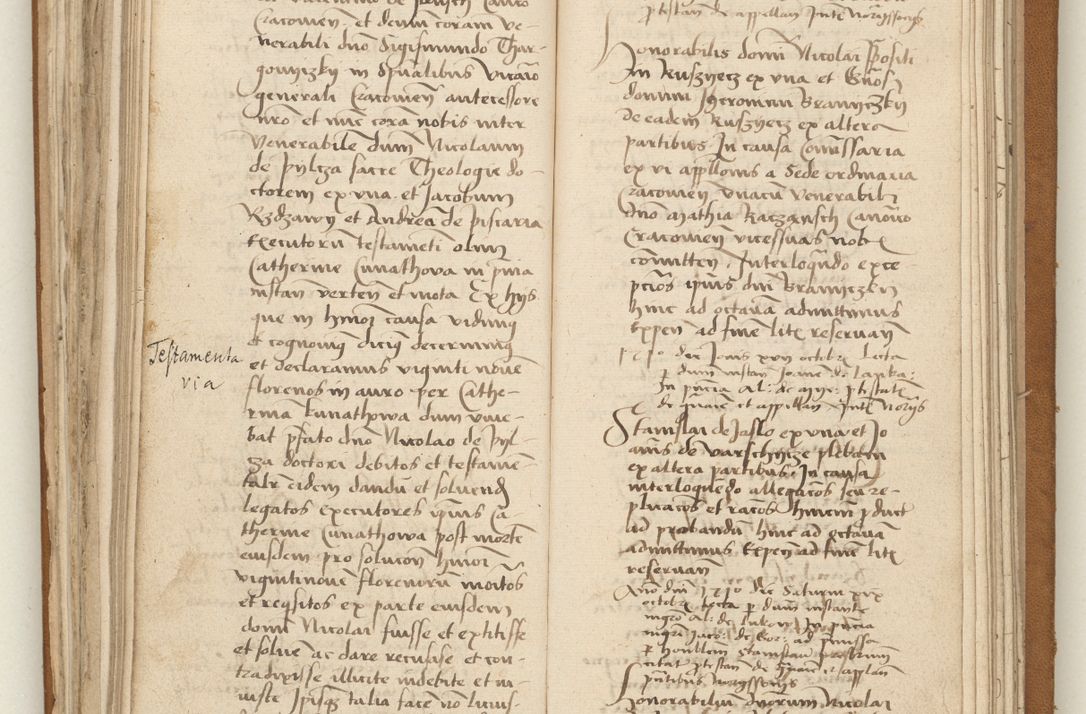 Cracovien. et demum coram ve-
nerabili dno Sigismundo Thar-
gowyczky in Spualibus vicario
generali Cracovien antecessore
nro et nunc cora nobis inter
Venerabile dum Nicolaum
de pyltza sacre Theologie do-
ctorem ex una et Jacobum
Rzdzawy et Andrea de piscaria
Executoru testameti olim
Catherine Cunathova in prima
instan verten et mota Ex hys
que in hmoi causa vidimus
et cognovimus dicimus decernimus
et declaramus viginti novem
florenos in auro per Cathe-
rina kunathowa dum vive-
bat prfato dno Nicolao de pyl-
za doctori debitos et testamen-
talr eidem dandu et solvend
legatos executores ipius Ca-
therine Cunathowa post morte
eiusdem pro solucon hmoi
vigintinove florenoru monitos
et reqsitos ex parte eiusdem
domi Nicolai fuisse et extitisse
et solve ac dare recusase et con-
tradixisse illicite indebite et in-
iuste Ipisq talia face no licuis-
Testamenta
ria
ptestan de appellan
Honorabilis domi Nicolai ppositi
In Ruszyecz ex una et Gnosi
domini Hieronimi Branyczky
de eadem Ruszyecz ex altera
partibus In causa Comissaria
ex vi applonis a Sede ordinaria
Cracovien unacu Venerabili
dno Mathia Raczansch Canonico
Cracovien vicessuas nob
comitten. Interloqndo exce
pcios ipius dni Branyczky
hinc ad octava admittimus
Expen ad fine litis reservan
1510 die Jovis xvii octobr Lecta
p dum instan Joane de Lapka:
In pncia Al: ac
de appellan
Stanislai de Jaslo ex una et Jo
anis de Varschycze plebani
ex altera partibus In causa
interloquedo allegacos seu re-
plicacos et racos hincin pduct
ad probandu hinc ad octava
admittimus Expen ad fine litis
reservan
Ano dni 1510 die Saturni xix
octobr Lecta p dum instante
nigro Al: de Lukow In pncia
nigri Jaco: de ad pmissa
p Stanislau
citat ptestan de et applan
Honorabiliu dnorum Nicolai